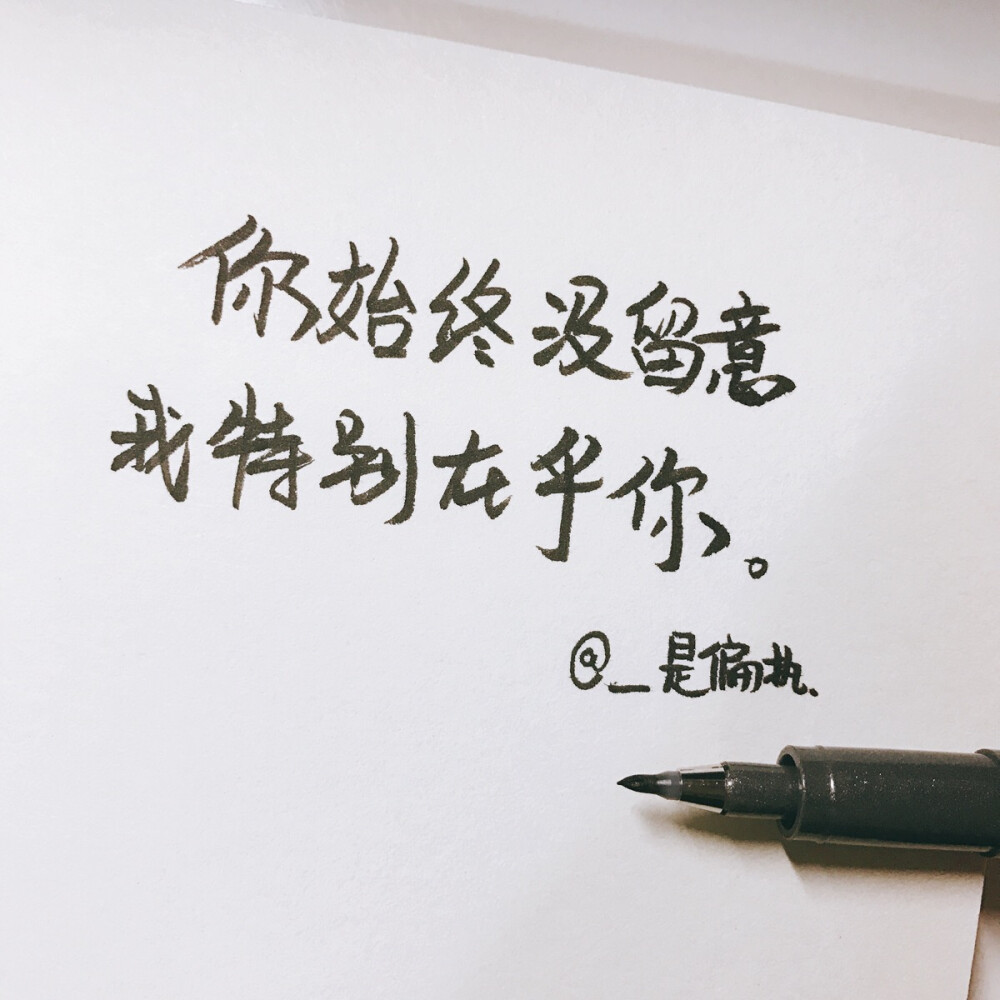 你始终没留意
我特别在乎你。
@_是偏执、